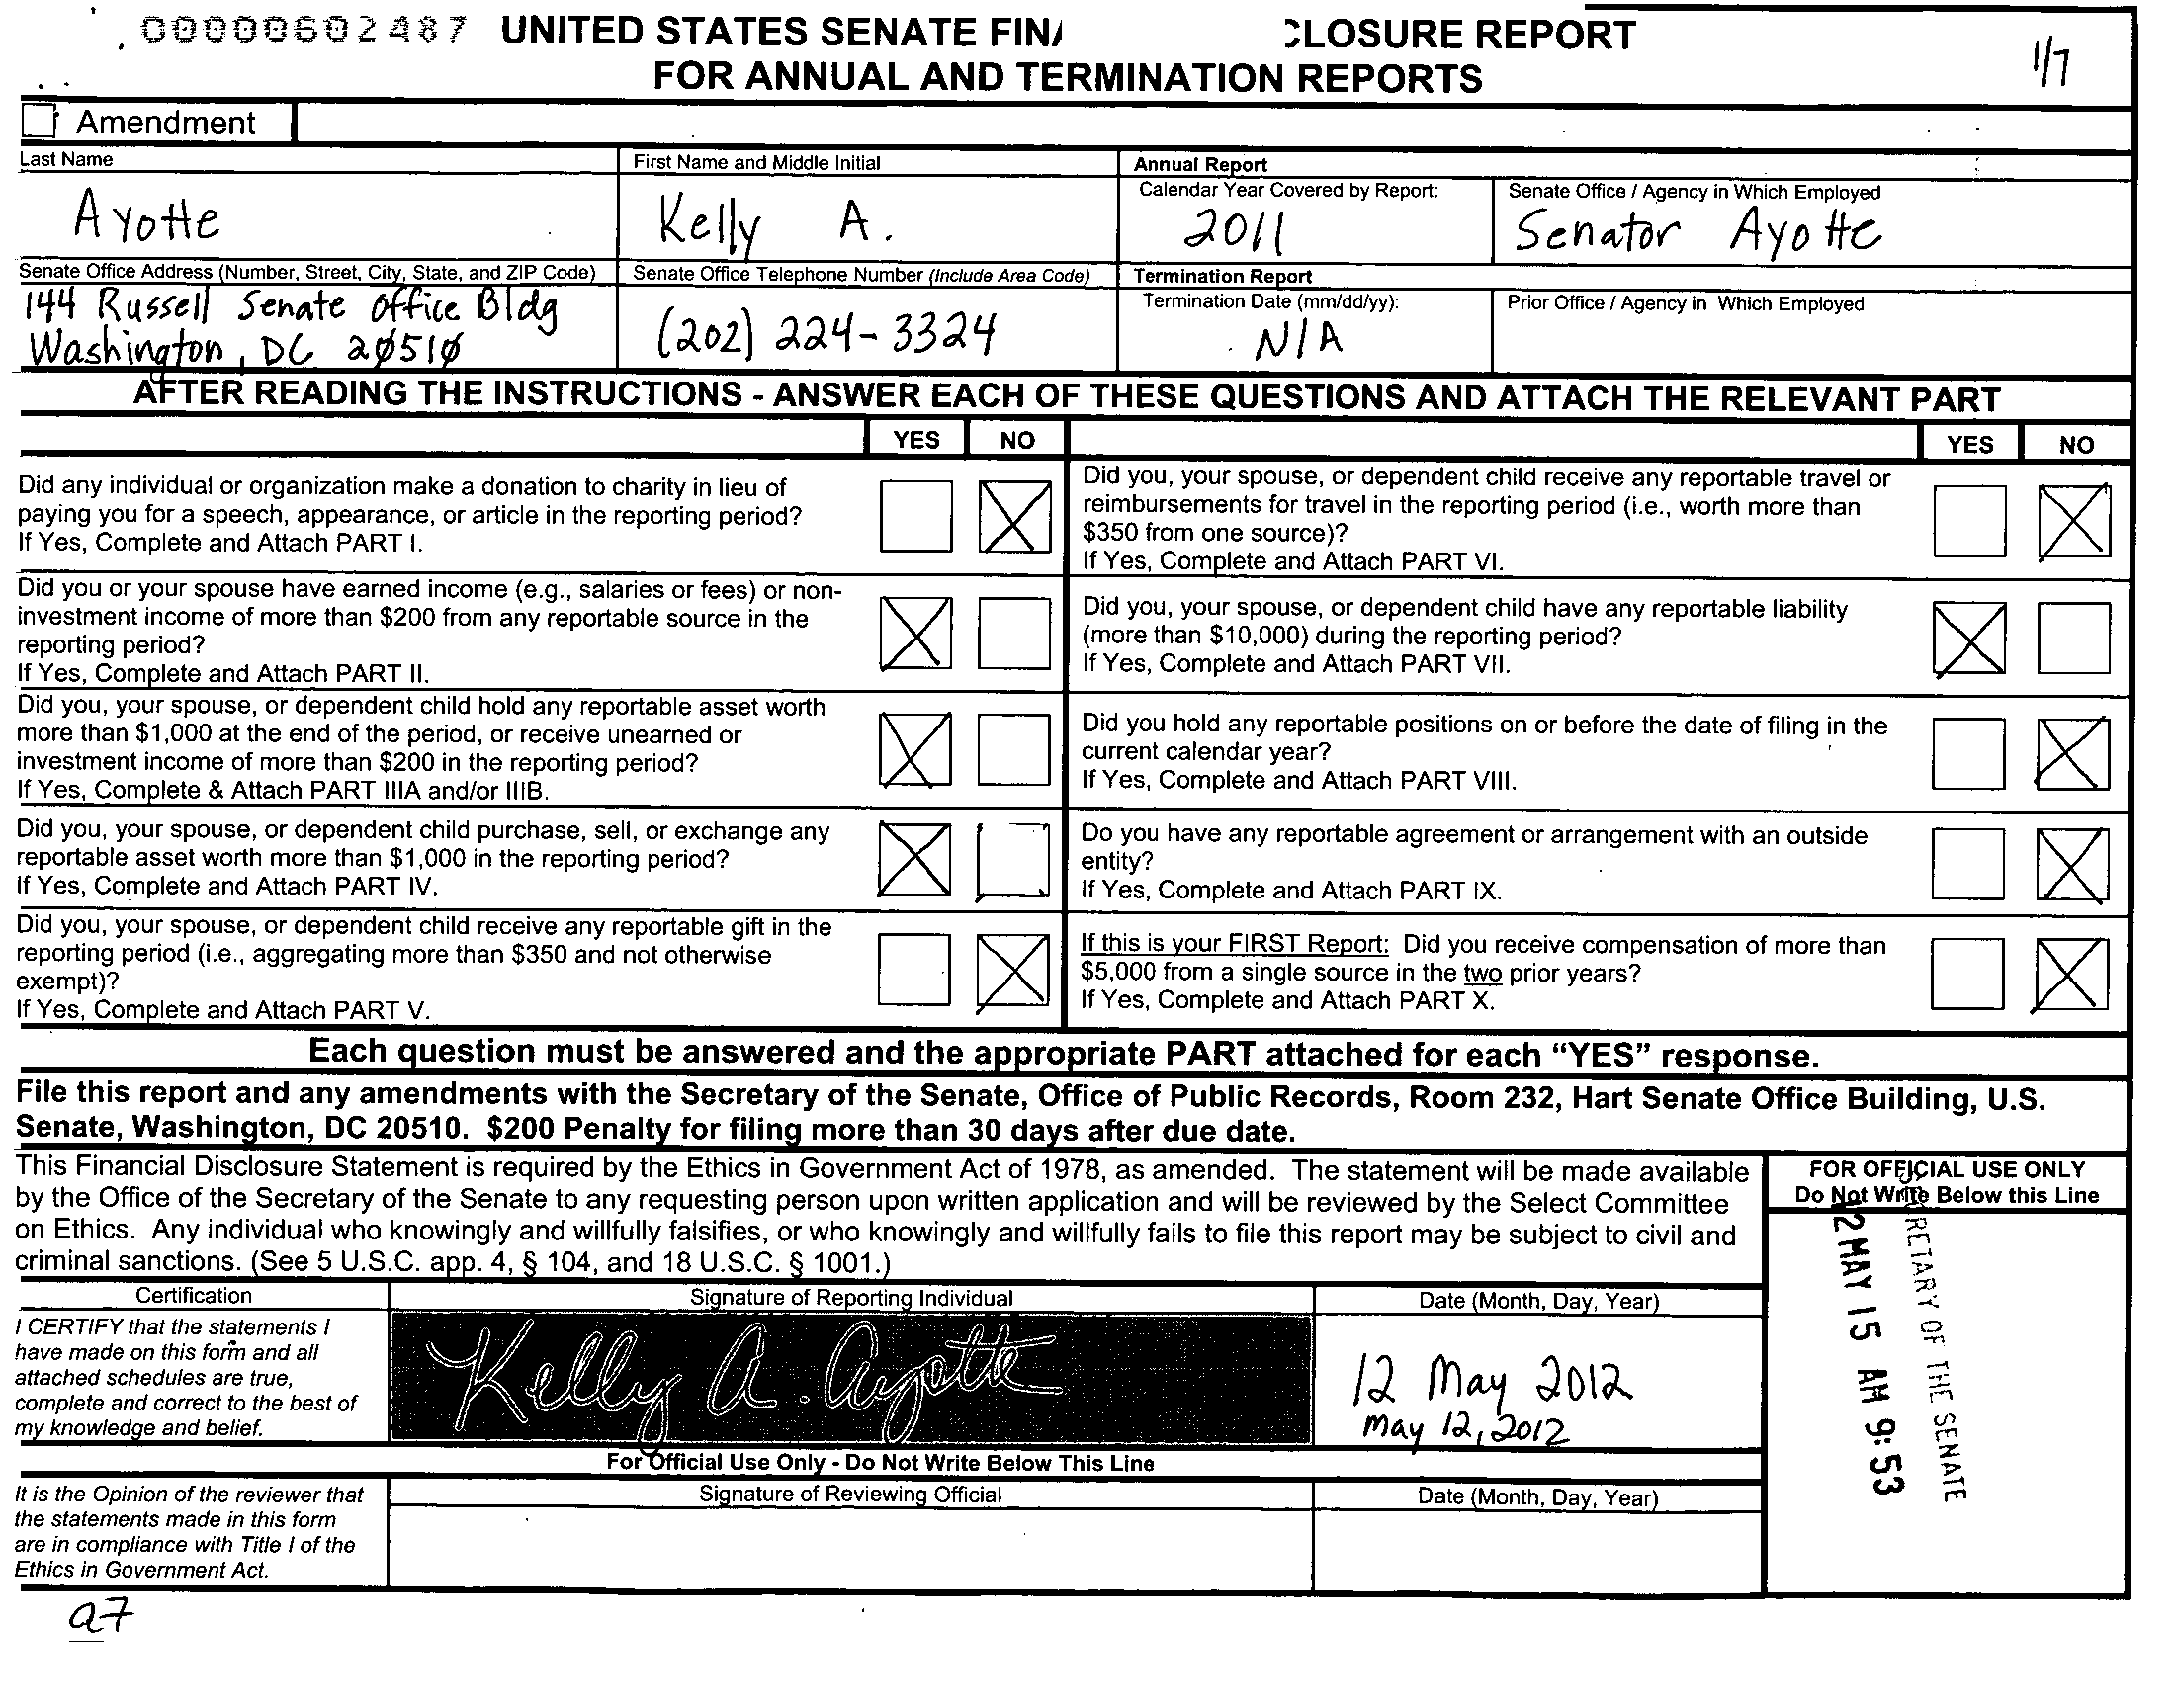 00000602487 UNITED STATES SENATE FINA CLOSURE REPORT
FOR ANNUAL AND TERMINATION REPORTS
1/7
Amendment
Last Name
Ayotte
First Name and Middle Initial
Kelly A.
Annual Report
Calendar Year Covered by Report:
2011
Senate Office / Agency in Which Employed
Senator Ayotte
Senate Office Address (Number, Street, City, State, and ZIP Code)
144 Russell Senate Office Bldg
Washington, DC 20510
Senate Office Telephone Number (Include Area Code)
(202) 224-3324
Termination Report
Termination Date (mm/dd/yy):
N/A
Prior Office / Agency in Which Employed
AFTER READING THE INSTRUCTIONS - ANSWER EACH OF THESE QUESTIONS AND ATTACH THE RELEVANT PART
YES NO
Did any individual or organization make a donation to charity in lieu of
paying you for a speech, appearance, or article in the reporting period?
If Yes, Complete and Attach PART I.
Did you or your spouse have earned income (e.g., salaries or fees) or non-
investment income of more than $200 from any reportable source in the
reporting period?
If Yes, Complete and Attach PART II.
Did you, your spouse, or dependent child hold any reportable asset worth
more than $1,000 at the end of the period, or receive unearned or
investment income of more than $200 in the reporting period?
If Yes, Complete & Attach PART IIIA and/or IIIB.
Did you, your spouse, or dependent child purchase, sell, or exchange any
reportable asset worth more than $1,000 in the reporting period?
If Yes, Complete and Attach PART IV.
Did you, your spouse, or dependent child receive any reportable gift in the
reporting period (i.e., aggregating more than $350 and not otherwise
exempt)?
If Yes, Complete and Attach PART V.
YES NO
Did you, your spouse, or dependent child receive any reportable travel or
reimbursements for travel in the reporting period (i.e., worth more than
$350 from one source)?
If Yes, Complete and Attach PART VI.
Did you, your spouse, or dependent child have any reportable liability
(more than $10,000) during the reporting period?
If Yes, Complete and Attach PART VII.
Did you hold any reportable positions on or before the date of filing in the
current calendar year?
If Yes, Complete and Attach PART VIII.
Do you have any reportable agreement or arrangement with an outside
entity?
If Yes, Complete and Attach PART IX.
If this is your FIRST Report: Did you receive compensation of more than
$5,000 from a single source in the two prior years?
If Yes, Complete and Attach PART X.
Each question must be answered and the appropriate PART attached for each “YES” response.
File this report and any amendments with the Secretary of the Senate, Office of Public Records, Room 232, Hart Senate Office Building, U.S.
Senate, Washington, DC 20510. $200 Penalty for filing more than 30 days after due date.
This Financial Disclosure Statement is required by the Ethics in Government Act of 1978, as amended. The statement will be made available
by the Office of the Secretary of the Senate to any requesting person upon written application and will be reviewed by the Select Committee
on Ethics. Any individual who knowingly and willfully falsifies, or who knowingly and willfully fails to file this report may be subject to civil and
criminal sanctions. (See 5 U.S.C. app. 4, § 104, and 18 U.S.C. § 1001.)
FOR OFFICIAL USE ONLY
Do Not Write Below this Line
SECRETARY OF THE SENATE
12 MAY 15 AM 9:53
Certification
I CERTIFY that the statements I
have made on this form and all
attached schedules are true,
complete and correct to the best of
my knowledge and belief.
Signature of Reporting Individual
Kelly A. Ayotte
Date (Month, Day, Year)
12 May 2012
May 12, 2012
For Official Use Only - Do Not Write Below This Line
It is the Opinion of the reviewer that
the statements made in this form
are in compliance with Title I of the
Ethics in Government Act.
Signature of Reviewing Official
Date (Month, Day, Year)
a7